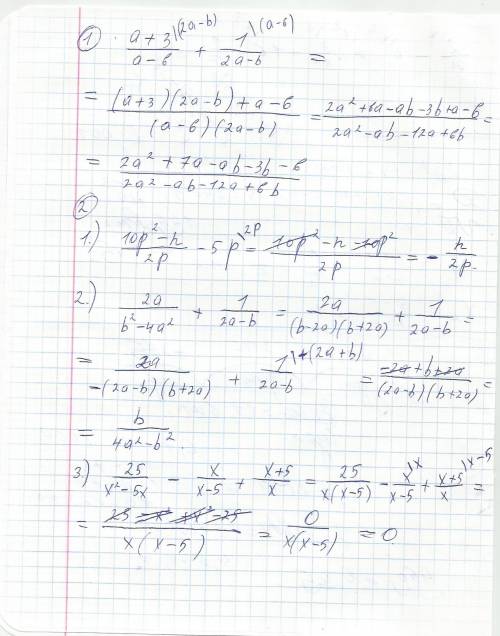 ① (a+3)/(a-6) \(2a-b) + 1/(2a-b) \(a-6) =
= ((a+3)(2a-b)+a-6)/((a-6)(2a-b)) = (2a²+6a-ab-3b+a-6)/(2a²-ab-12a+6b) =
= (2a²+7a-ab-3b-6)/(2a²-ab-12a+6b)
②
1.) (10p²-n)/2p - 5p \2p = (10p²-n-10p²)/2p = - n/2p.
2.) 2a/(b²-4a²) + 1/(2a-b) = 2a/((b-2a)(b+2a)) + 1/(2a-b) =
= 2a/(-(2a-b)(b+2a)) + 1/(2a-b) \+(2a+b) = (-2a+b+2a)/((2a-b)(b+2a)) =
= b/(4a²-b²).
3.) 25/(x²-5x) - x/(x-5) + (x+5)/x = 25/(x(x-5)) - x/(x-5) \x + (x+5)/x \x-5 =
= (25-x²+x²-25)/(x(x-5)) = 0/(x(x-5)) = 0